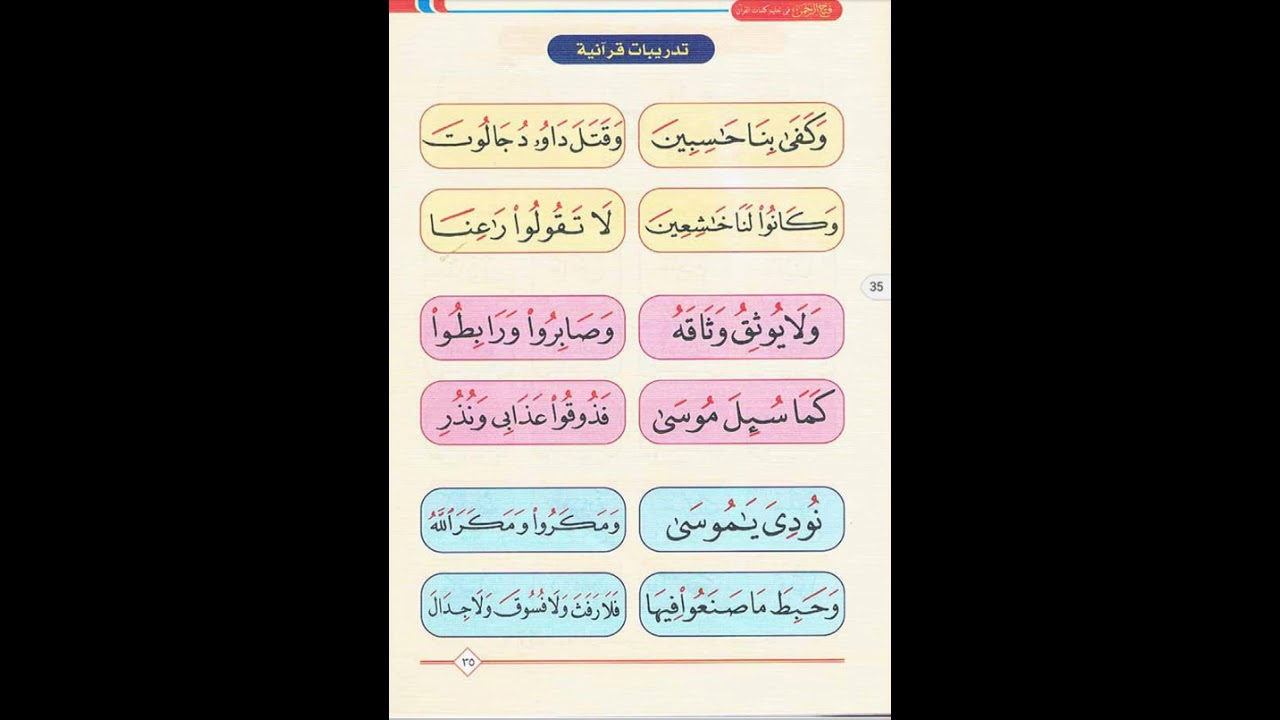 فتح الرحمن في تعليم كلمات القرآن
تدريبات قرآنية
وَكَفَىٰ بِنَا حَٰسِبِينَ
وَقَتَلَ دَاوُۥدُ جَالُوتَ
وَكَانُوا۟ لَنَا خَٰشِعِينَ
لَا تَقُولُوا۟ رَٰعِنَا
35
وَلَا يُوثِقُ وَثَاقَهُ
وَصَابِرُوا۟ وَرَابِطُوا۟
كَمَا سُئِلَ مُوسَىٰ
فَذُوقُوا۟ عَذَابِى وَنُذُرِ
نُودِىَ يَٰمُوسَىٰ
وَمَكَرُوا۟ وَمَكَرَ ٱللَّهُ
وَحَبِطَ مَا صَنَعُوا۟ فِيهَا
فَلَا رَفَثَ وَلَا فُسُوقَ وَلَا جِدَالَ
٣٥